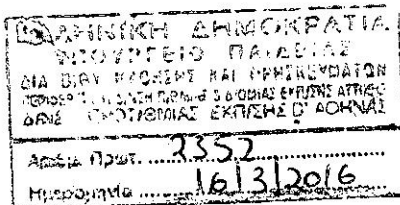 ΕΛΛΗΝΙΚΗ ΔΗΜΟΚΡΑΤΙΑ
ΥΠΟΥΡΓΕΙΟ ΠΑΙΔΕΙΑΣ
ΔΙΑ ΒΙΟΥ ΜΑΘΗΣΗΣ ΚΑΙ ΘΡΗΣΚΕΥΜΑΤΩΝ
ΕΚΠ/ΣΗΣ ΑΤΤΙΚΗΣ
Δ/ΝΣΗ ΠΡΩΤ/ΘΜΙΑΣ ΕΚΠ/ΣΗΣ Δ' ΑΘΗΝΑΣ
Αριθμ. Πρωτ. 2352
Ημερομηνία 16/3/2016